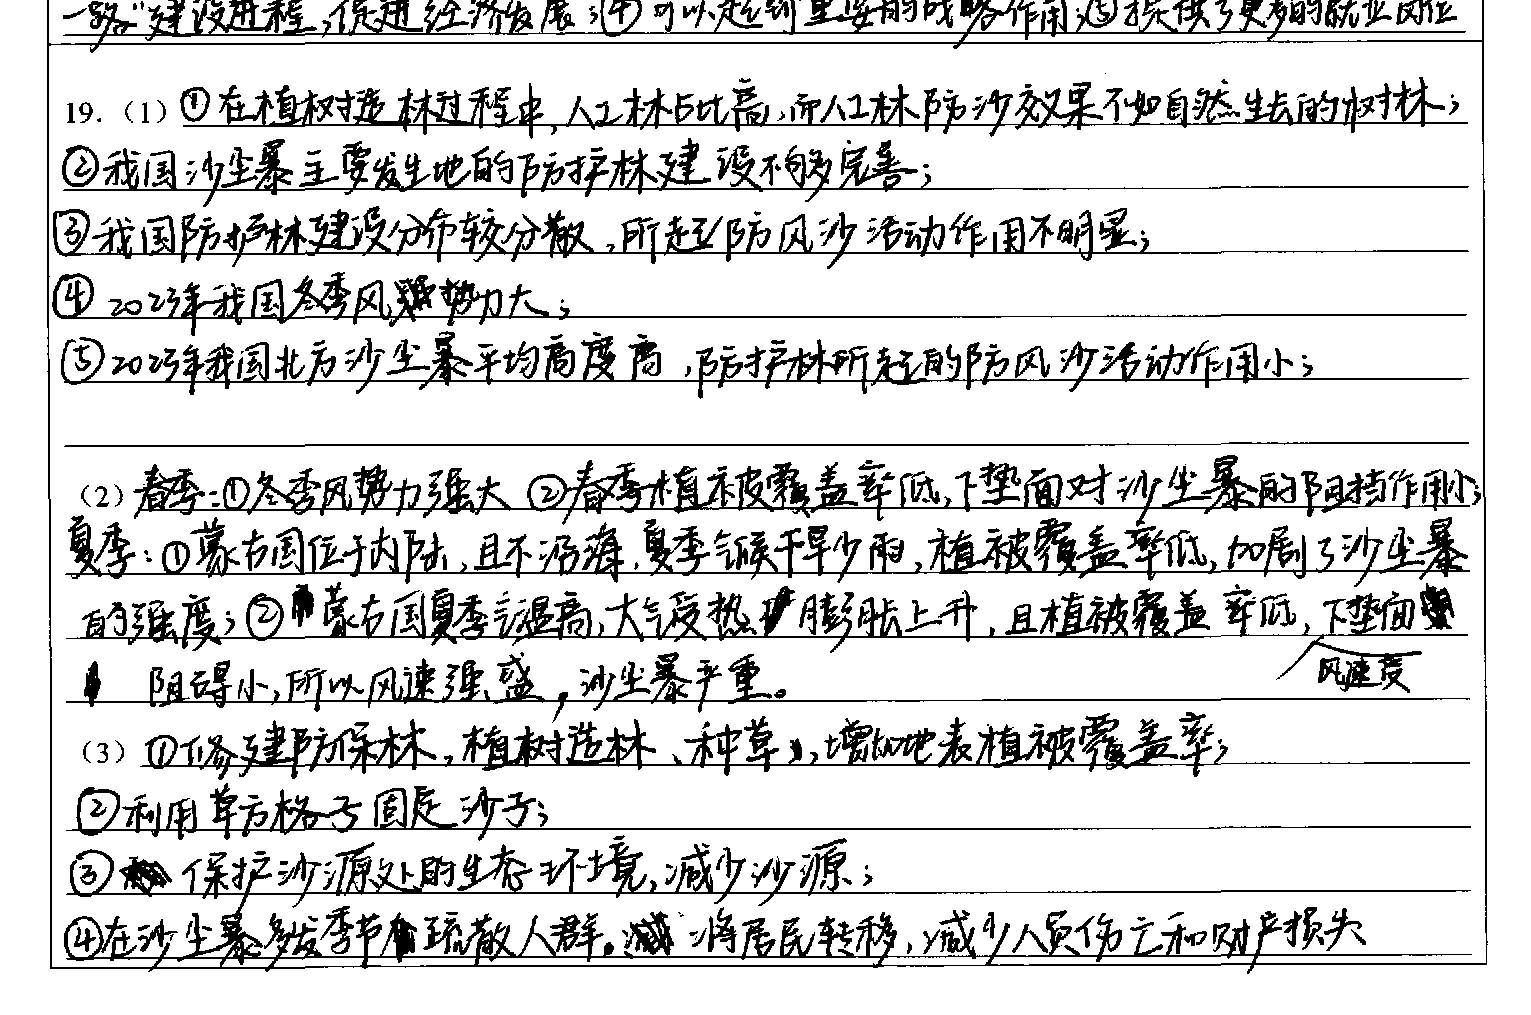 一路”建设进程，促进经济发展；④可以起到重要的战略作用；⑤提供了更多的就业岗位
19.（1）①在植树造林过程中，人工林占比高，而人工林防沙效果不如自然生长的树林；
②我国沙尘暴主要发生地的防护林建设不够完善；
③我国防护林建设分布较分散，所起防风沙活动作用不明显；
④2023年我国冬季风势力大；
⑤2023年我国北方沙尘暴平均高度高，防护林所起的防风沙活动作用小；
（2）春季：①冬季风势力强大 ②春季植被覆盖率低，下垫面对沙尘暴的阻挡作用小；
夏季：①蒙古国位于内陆，且不沿海，夏季气候干旱少雨，植被覆盖率低，加剧了沙尘暴
的强度；②蒙古国夏季气温高，大气受热膨胀上升，且植被覆盖率低，下垫面
阻碍小，所以风速强盛，沙尘暴严重。
风速度
（3）①修建防保林，植树造林、种草，增加地表植被覆盖率；
②利用草方格子固定沙子；
③保护沙源处的生态环境，减少沙源；
④在沙尘暴多发季节疏散人群。将居民转移，减少人员伤亡和财产损失